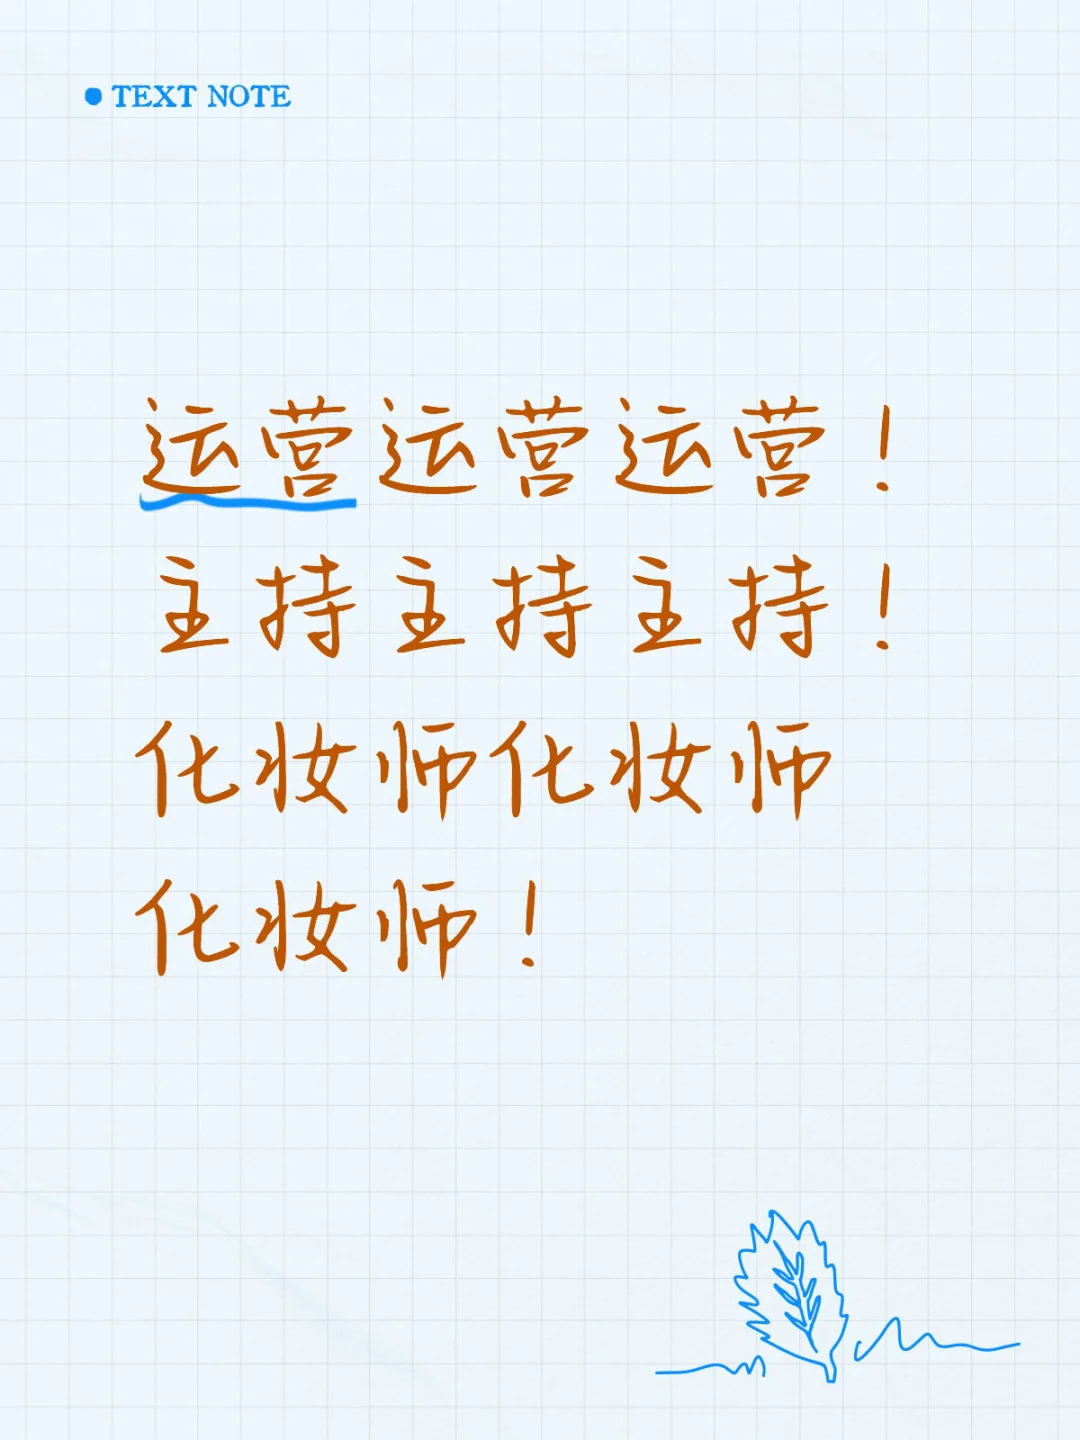 TEXT NOTE
运营运营运营！
主持主持主持！
化妆师化妆师
化妆师！